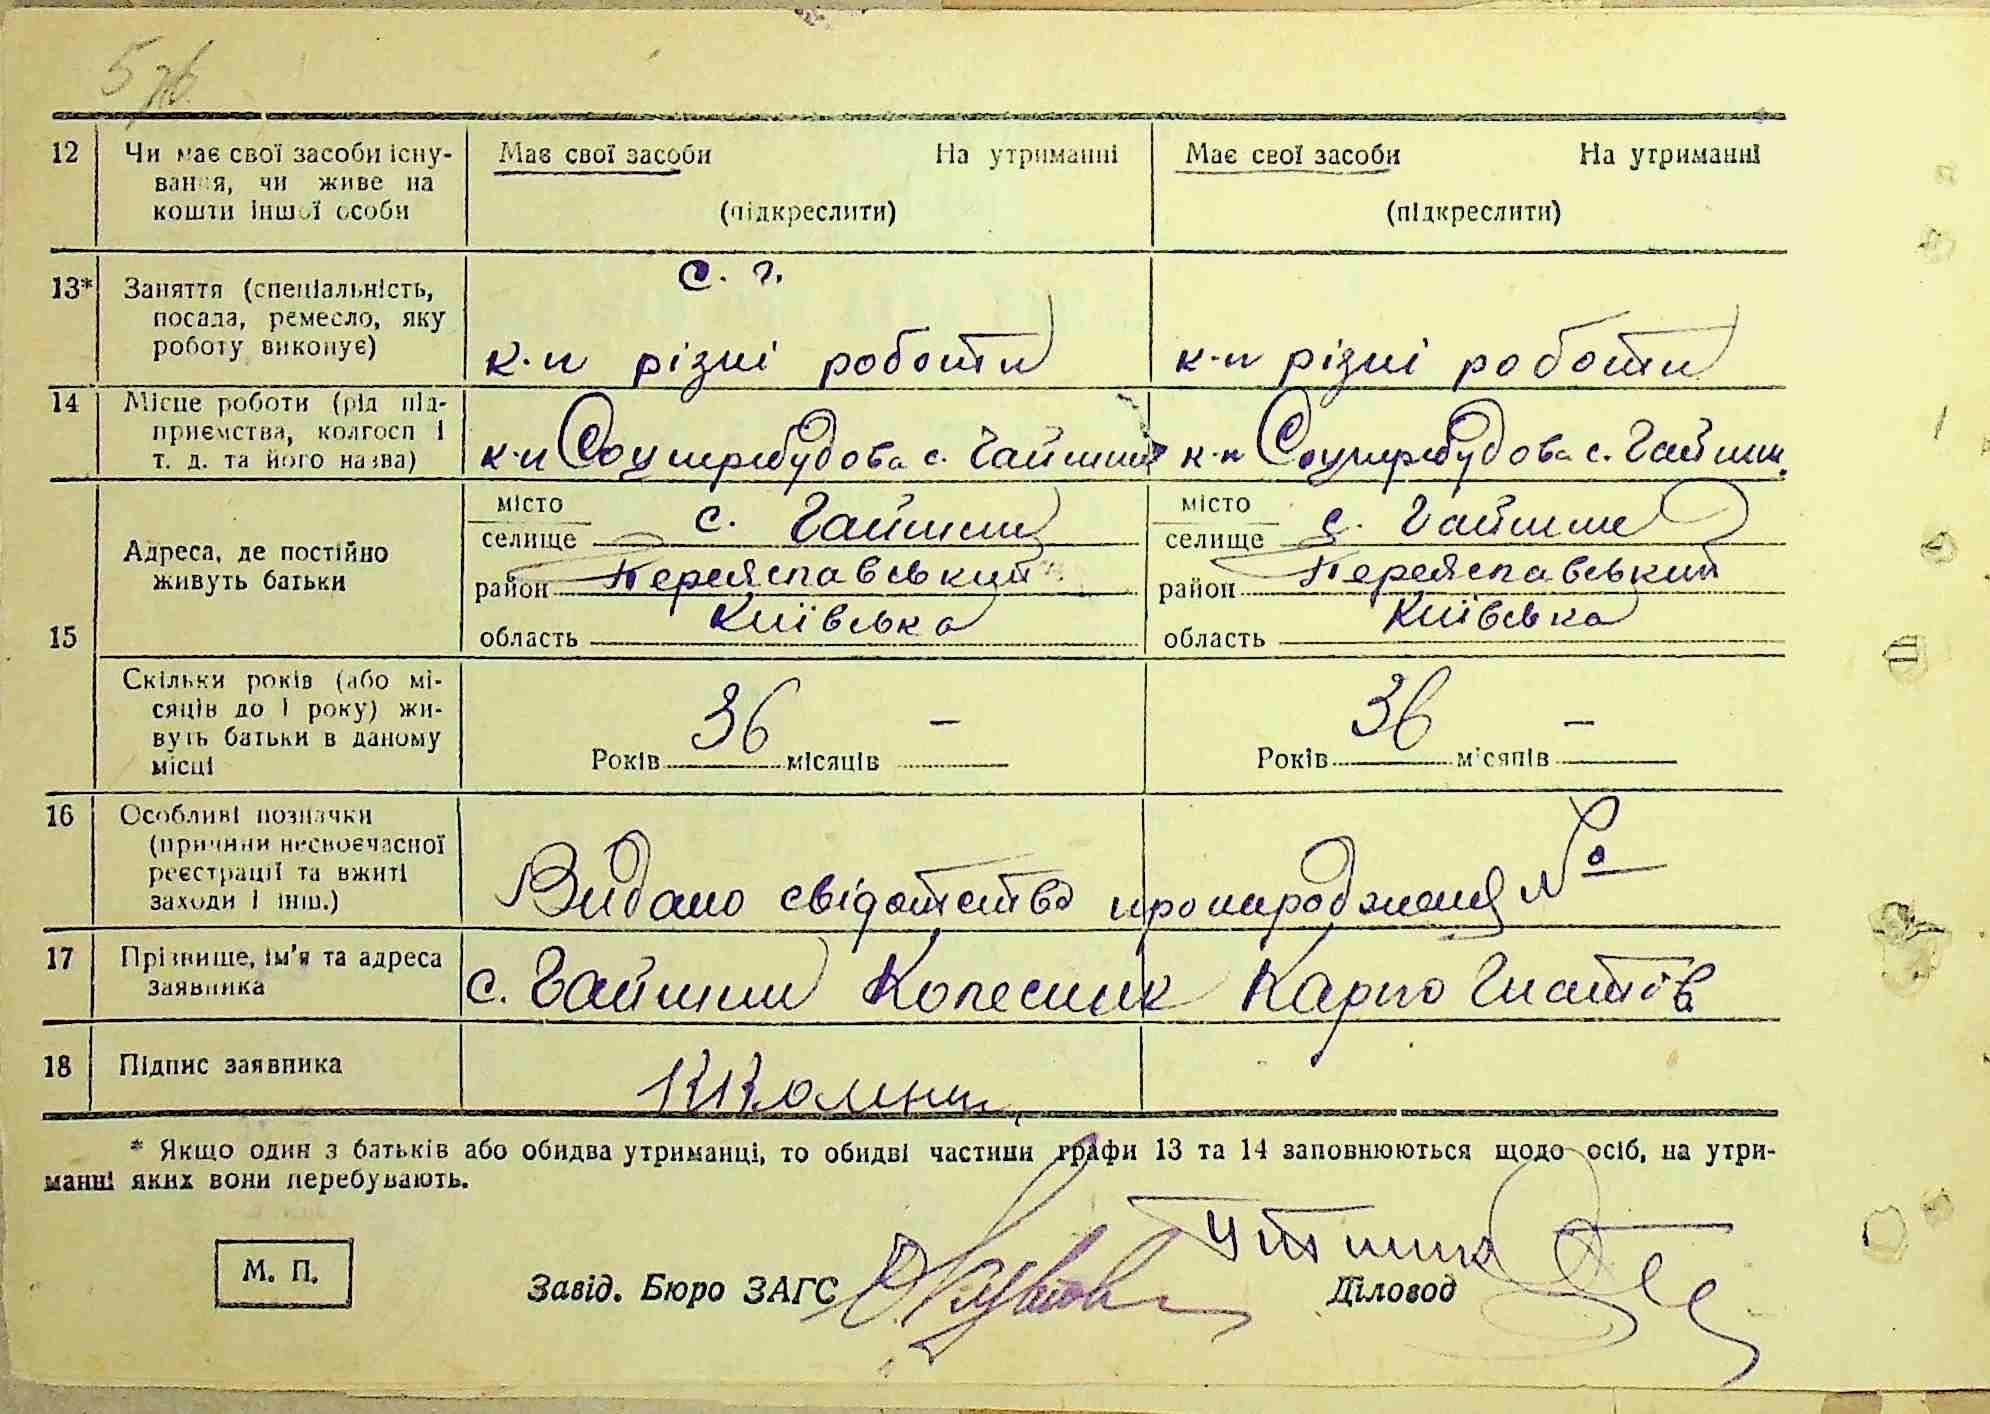 12 Чи має свої засоби існу- Має свої засоби На утриманні Має свої засоби На утриманні
вання, чи живе на
кошти іншої особи (підкреслити) (підкреслити)
с. г.
13* Заняття (спеціальність,
посада, ремесло, яку
роботу виконує) к-п різні роботи к-п різні роботи
14 Місце роботи (рід під-
приємства, колгосп і
т. д. та його назва) к-п Соцперебудова с. Гайшин к-п Соцперебудова с. Гайшин
15 Адреса, де постійно
живуть батьки
місто місто
селище с. Гайшин селище с. Гайшин
район Переяславський район Переяславський
область Київська область Київська
Скільки років (або мі-
сяців до 1 року) жи-
вуть батьки в даному
місці
Років 36 місяців — Років 36 місяців —
16 Особливі позначки
(причини несвоєчасної
реєстрації та вжиті
заходи і інш.) Видано свідотство про народження №
17 Прізвище, ім'я та адреса
заявника с. Гайшин Колесник Карпо Гнатів
18 Підпис заявника
* Якщо один з батьків або обидва утриманці, то обидві частини графи 13 та 14 заповнюються щодо осіб, на утри-
манні яких вони перебувають.
М. П. Завід. Бюро ЗАГС Діловод